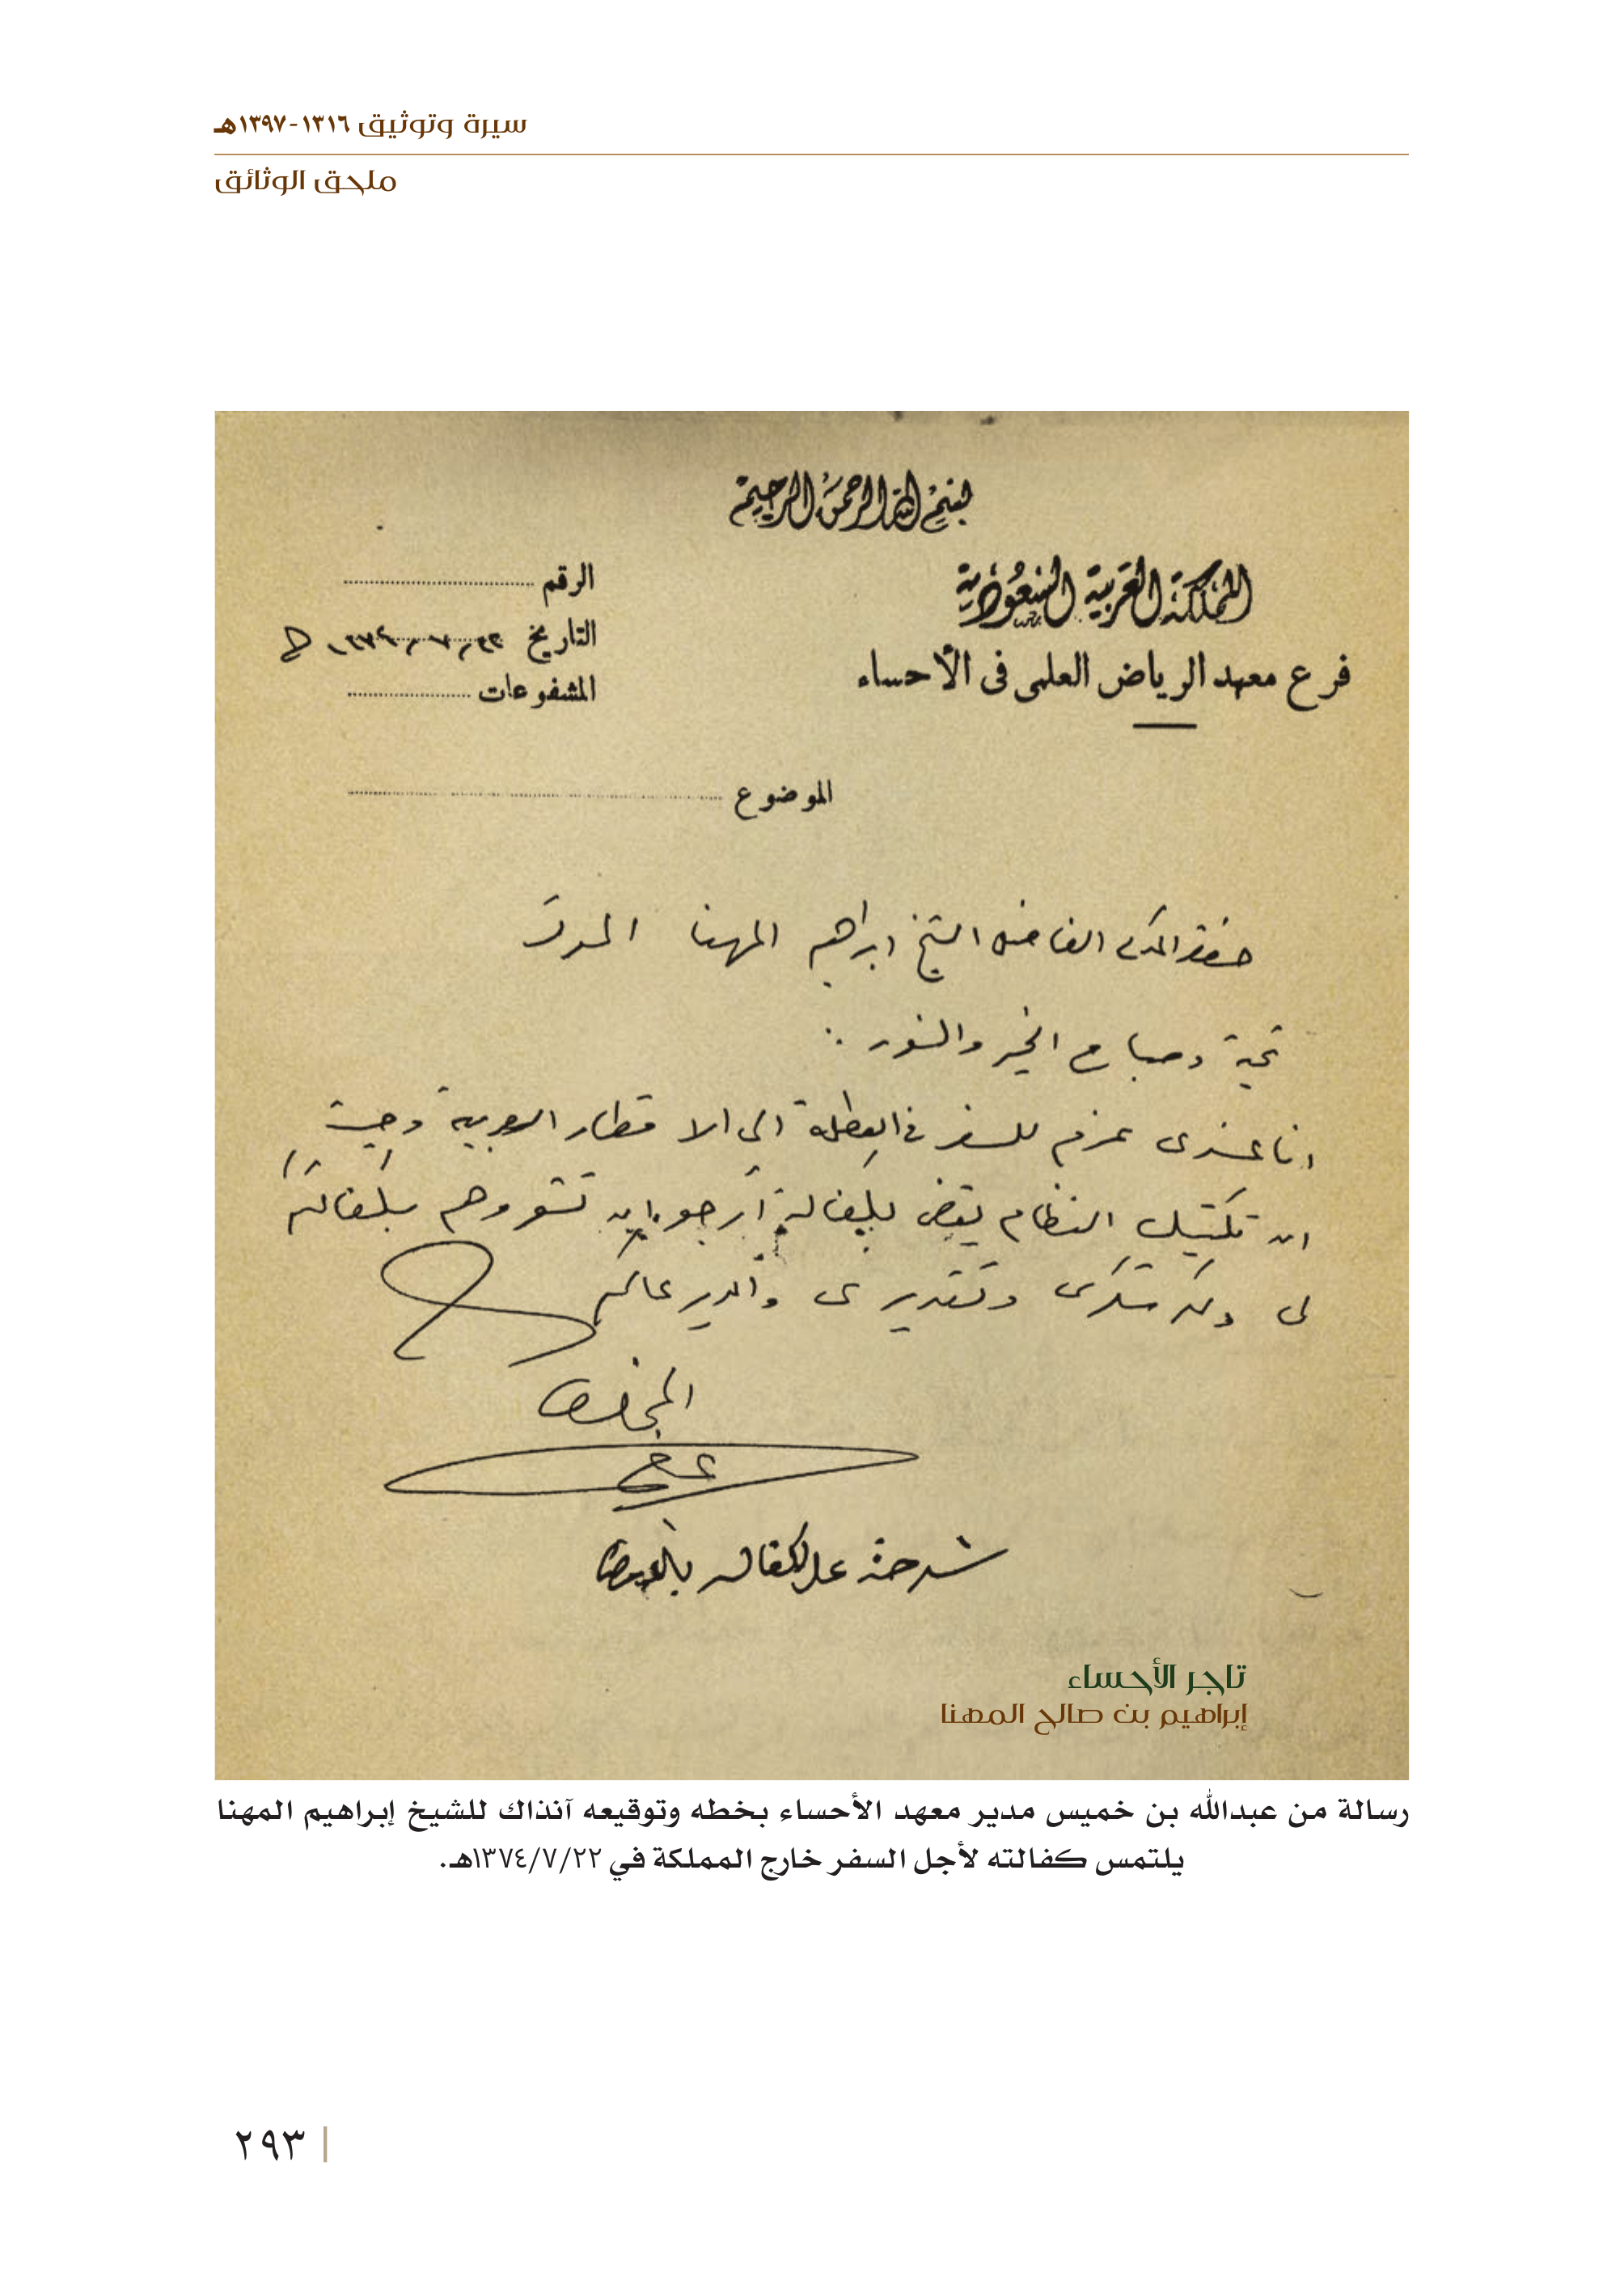 سيرة وتوثيق ١٣١٦-١٣٩٧هـ
ملحق الوثائق
بسم الله الرحمن الرحيم
المملكة العربية السعودية
فرع معهد الرياض العلمى فى الأحساء
الرقم
التاريخ ٢٢ / ٧ / ١٣٧٤ هـ
المشفوعات
الموضوع
حضرة المكرم الفاضل الشيخ ابراهيم المهنا الموقر
تحية وصباح الخير والنور :
انا عندى عزم للسفر في العطلة الى الاقطار العربية وحيث
ان النظام يقضى بكفالة أرجو ان بكفالتكم
لى ولكم شكرى وتقديرى والله يرعاكم
المخلص
على الكفاله
تاجر الأحساء
إبراهيم بن صالح المهنا
رسالة من عبدالله بن خميس مدير معهد الأحساء بخطه وتوقيعه آنذاك للشيخ إبراهيم المهنا
يلتمس كفالته لأجل السفر خارج المملكة في ١٣٧٤/٧/٢٢هـ.
٢٩٣